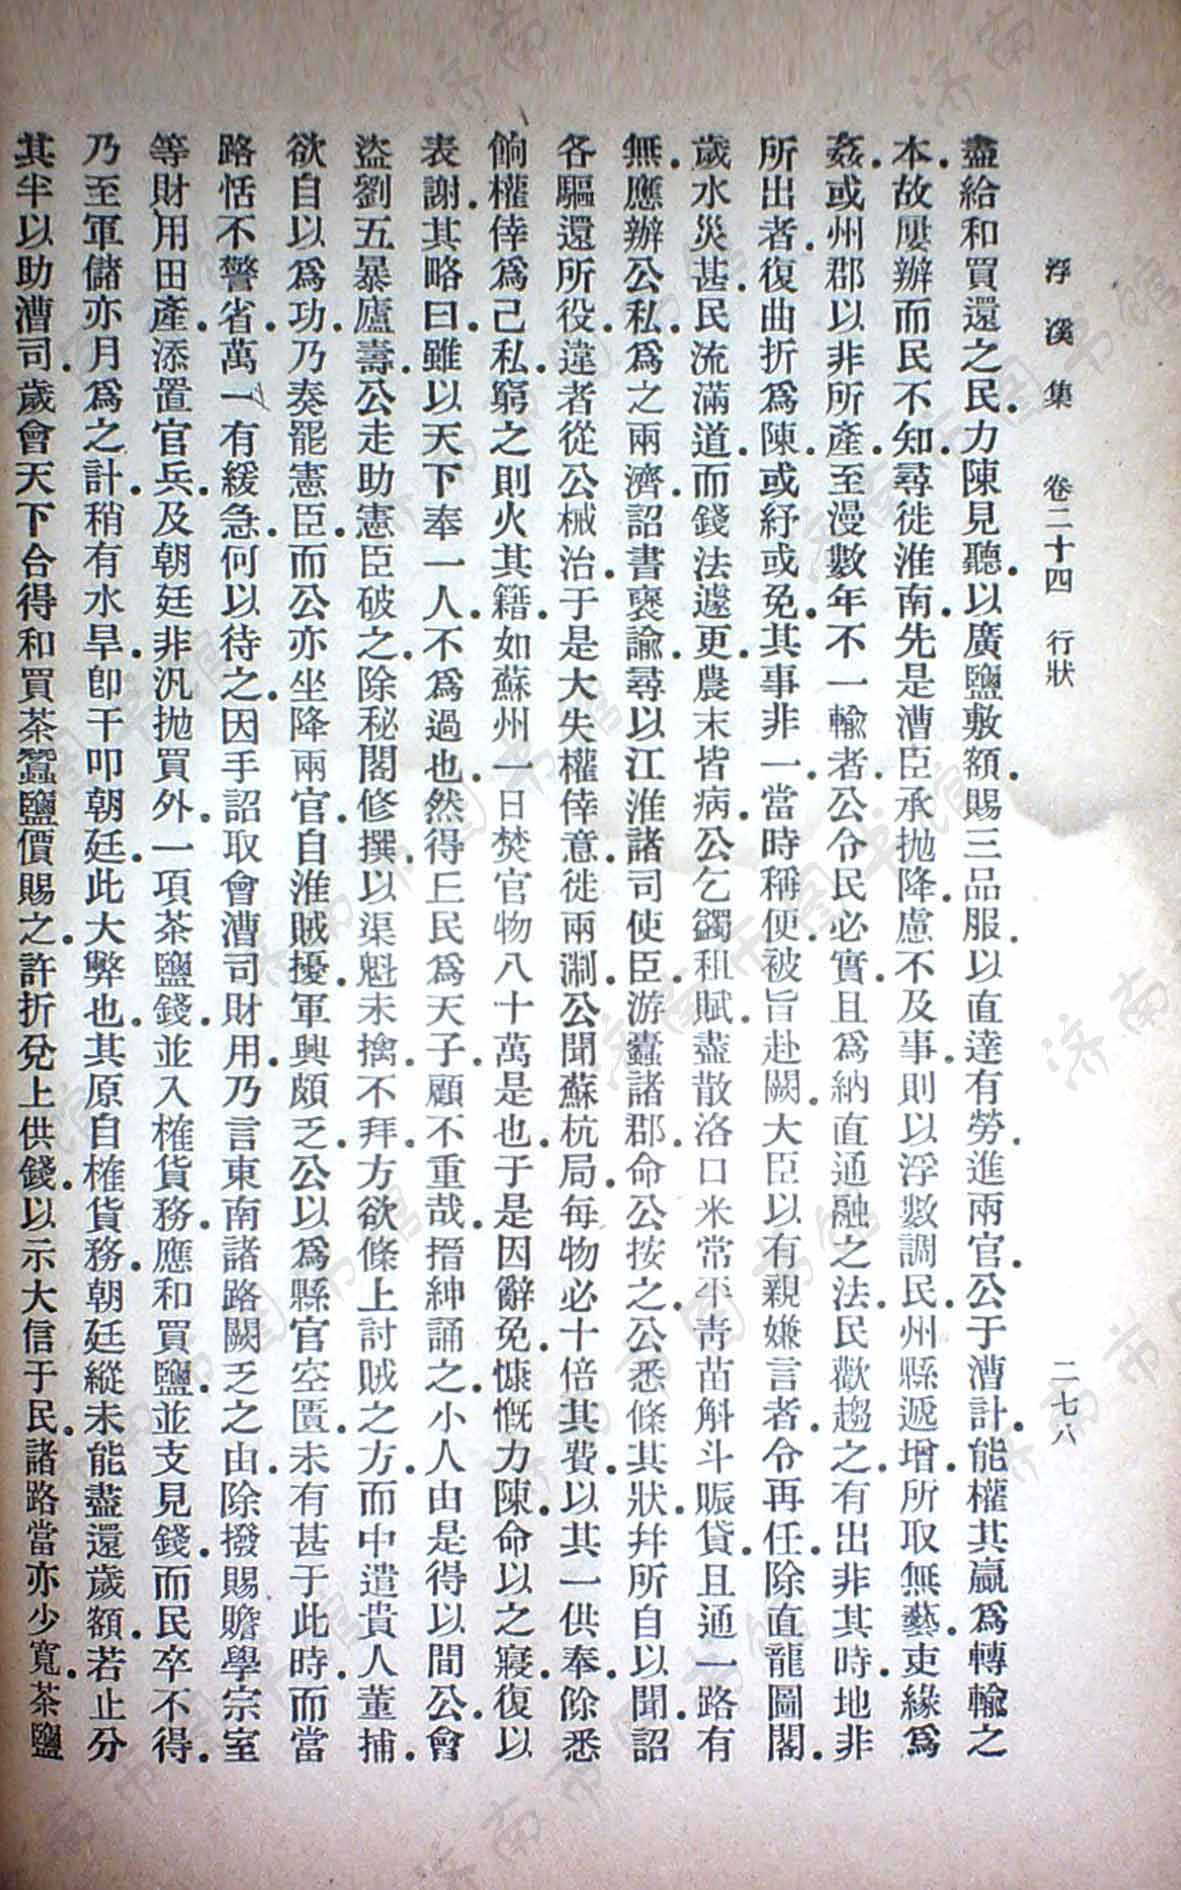 浮溪集 卷二十四 行狀 二七八
盡給和買還之民.力陳見聽.以廣鹽敷額.賜三品服.以直達有勞.進兩官.公于漕計.能權其贏爲轉輸之
本.故屢辦而民不知.尋徙淮南.先是漕臣承拋降.慮不及事.則以浮數調民.州縣遞增.所取無藝.吏緣爲
姦.或州郡以非所產.至漫數年不一輸者.公令民必實.且爲納直通融之法.民歡趨之.有出非其時.地非
所出者.復曲折爲陳.或紓或免.其事非一.當時稱便.被旨赴闕.大臣以有親嫌言者.令再任.除直龍圖閣.
歲水災甚.民流滿道.而錢法遽更.農末皆病.公乞蠲租賦.盡散洛口米常平靑苗斛斗賑貸.且通一路有
無.應辦公私.爲之兩濟.詔書襃諭.尋以江淮諸司使臣.游蠹諸郡.命公按之.公悉條其狀.幷所自以聞.詔
各驅還所役.違者從公械治.于是大失權倖意.徙兩淛.公聞蘇杭局.每物必十倍其費.以其一供奉.餘悉
餉權倖爲己私.窮之則火其籍.如蘇州一日焚官物八十萬是也.于是因辭免.慷慨力陳.命以之寢.復以
表謝.其略曰.雖以天下奉一人.不爲過也.然得丘民爲天子.顧不重哉.搢紳誦之.小人由是得以間公.會
盜劉五暴廬壽.公走助憲臣破之.除秘閣修撰.以渠魁未擒.不拜.方欲條上討賊之方.而中遣貴人董捕.
欲自以爲功.乃奏罷憲臣.而公亦坐降兩官.自淮賊擾.軍興頗乏.公以爲縣官空匱.未有甚于此時.而當
路恬不警省.萬一有緩急.何以待之.因手詔取會漕司財用.乃言東南諸路闕乏之由.除撥賜贍學宗室
等財用田產.添置官兵.及朝廷非汎拋買外.一項茶鹽錢.並入榷貨務.應和買鹽.並支見錢.而民卒不得.
乃至軍儲亦月爲之計.稍有水旱.卽干叩朝廷.此大弊也.其原自榷貨務.朝廷縱未能盡還歲額.若止分
其半以助漕司.歲會天下合得和買茶蠶鹽價賜之.許折兌上供錢.以示大信于民.諸路當亦少寬.茶鹽